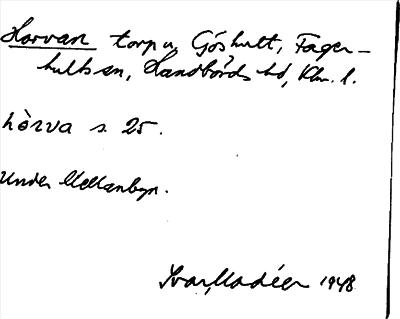 Horvan torp u. Göshult, Fager-
hults sn, Handbörds hd, Klm. l.
hòrva s. 25.
Under Mellanbyn.
Ivar Modéer 1948